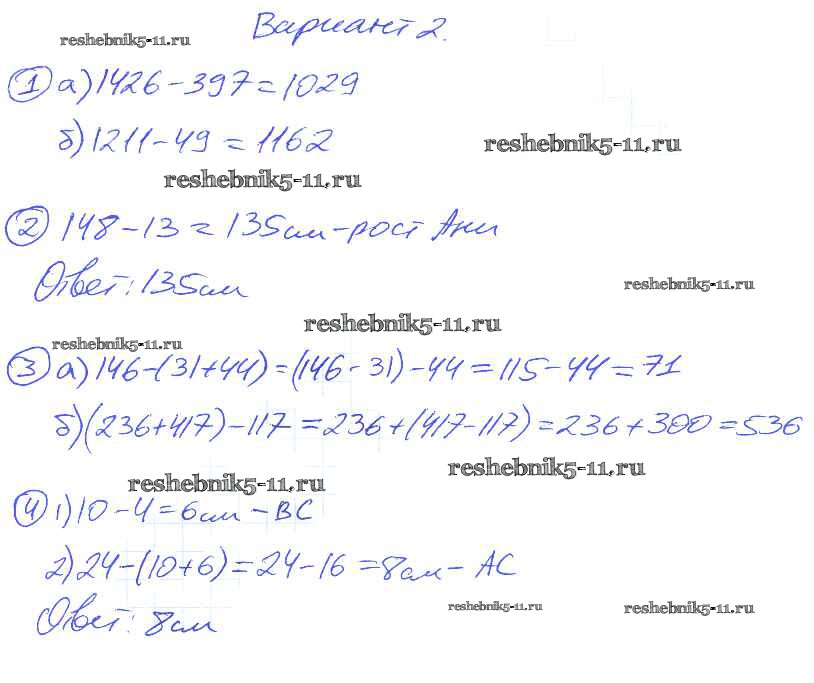 Вариант 2.
reshebnik5-11.ru
1 а) 1426 - 397 = 1029
б) 1211 - 49 = 1162
reshebnik5-11.ru
reshebnik5-11.ru
2 148 - 13 = 135см - рост Ани
Ответ: 135см
reshebnik5-11.ru
reshebnik5-11.ru
reshebnik5-11.ru
3 а) 146 - (31 + 44) = (146 - 31) - 44 = 115 - 44 = 71
б) (236 + 417) - 117 = 236 + (417 - 117) = 236 + 300 = 536
reshebnik5-11.ru
reshebnik5-11.ru
4 1) 10 - 4 = 6см - ВС
2) 24 - (10 + 6) = 24 - 16 = 8см - АС
reshebnik5-11.ru
reshebnik5-11.ru
Ответ: 8см